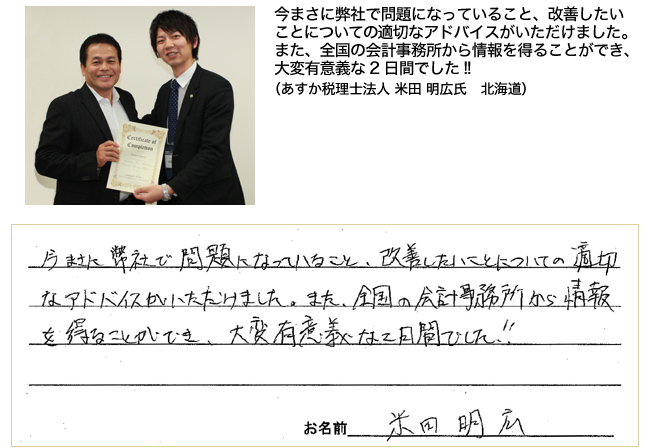 今まさに弊社で問題になっていること、改善したい
ことについての適切なアドバイスがいただけました。
また、全国の会計事務所から情報を得ることができ、
大変有意義な2日間でした!!
（あすか税理士法人 米田 明広氏　北海道）
Certificate of
Completion
今まさに弊社で問題になっていること、改善したいことについての適切
なアドバイスがいただけました。また、全国の会計事務所から情報
を得ることができ、大変有意義な2日間でした!!
お名前 米田 明広